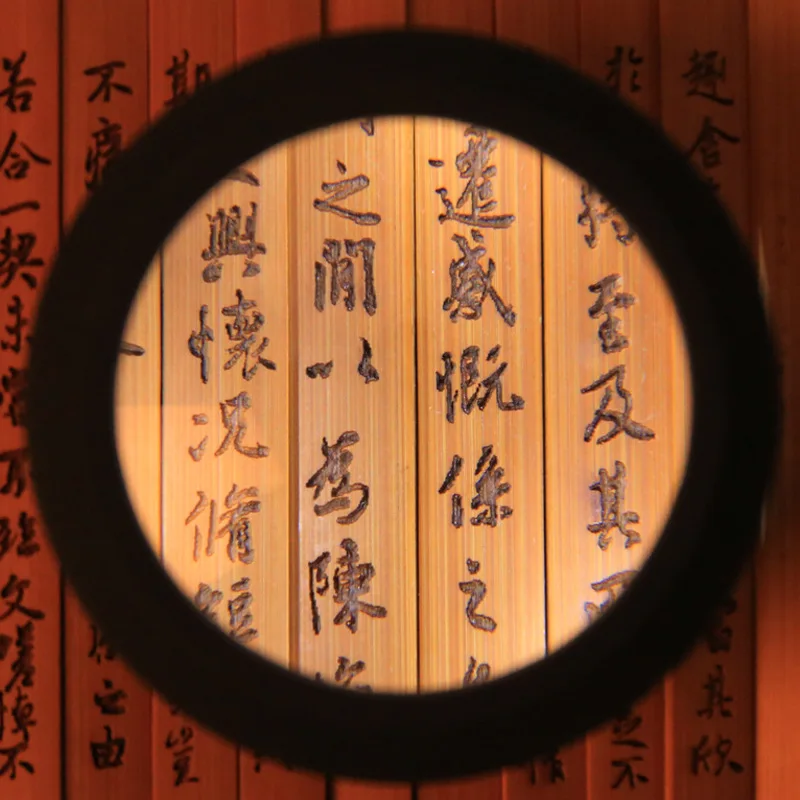 趣舍其欣
於不
至及其
遷感慨係之
之間以為陳
興懷況脩短
期豈
不痛之由
若合一契未嘗不臨文嗟悼不